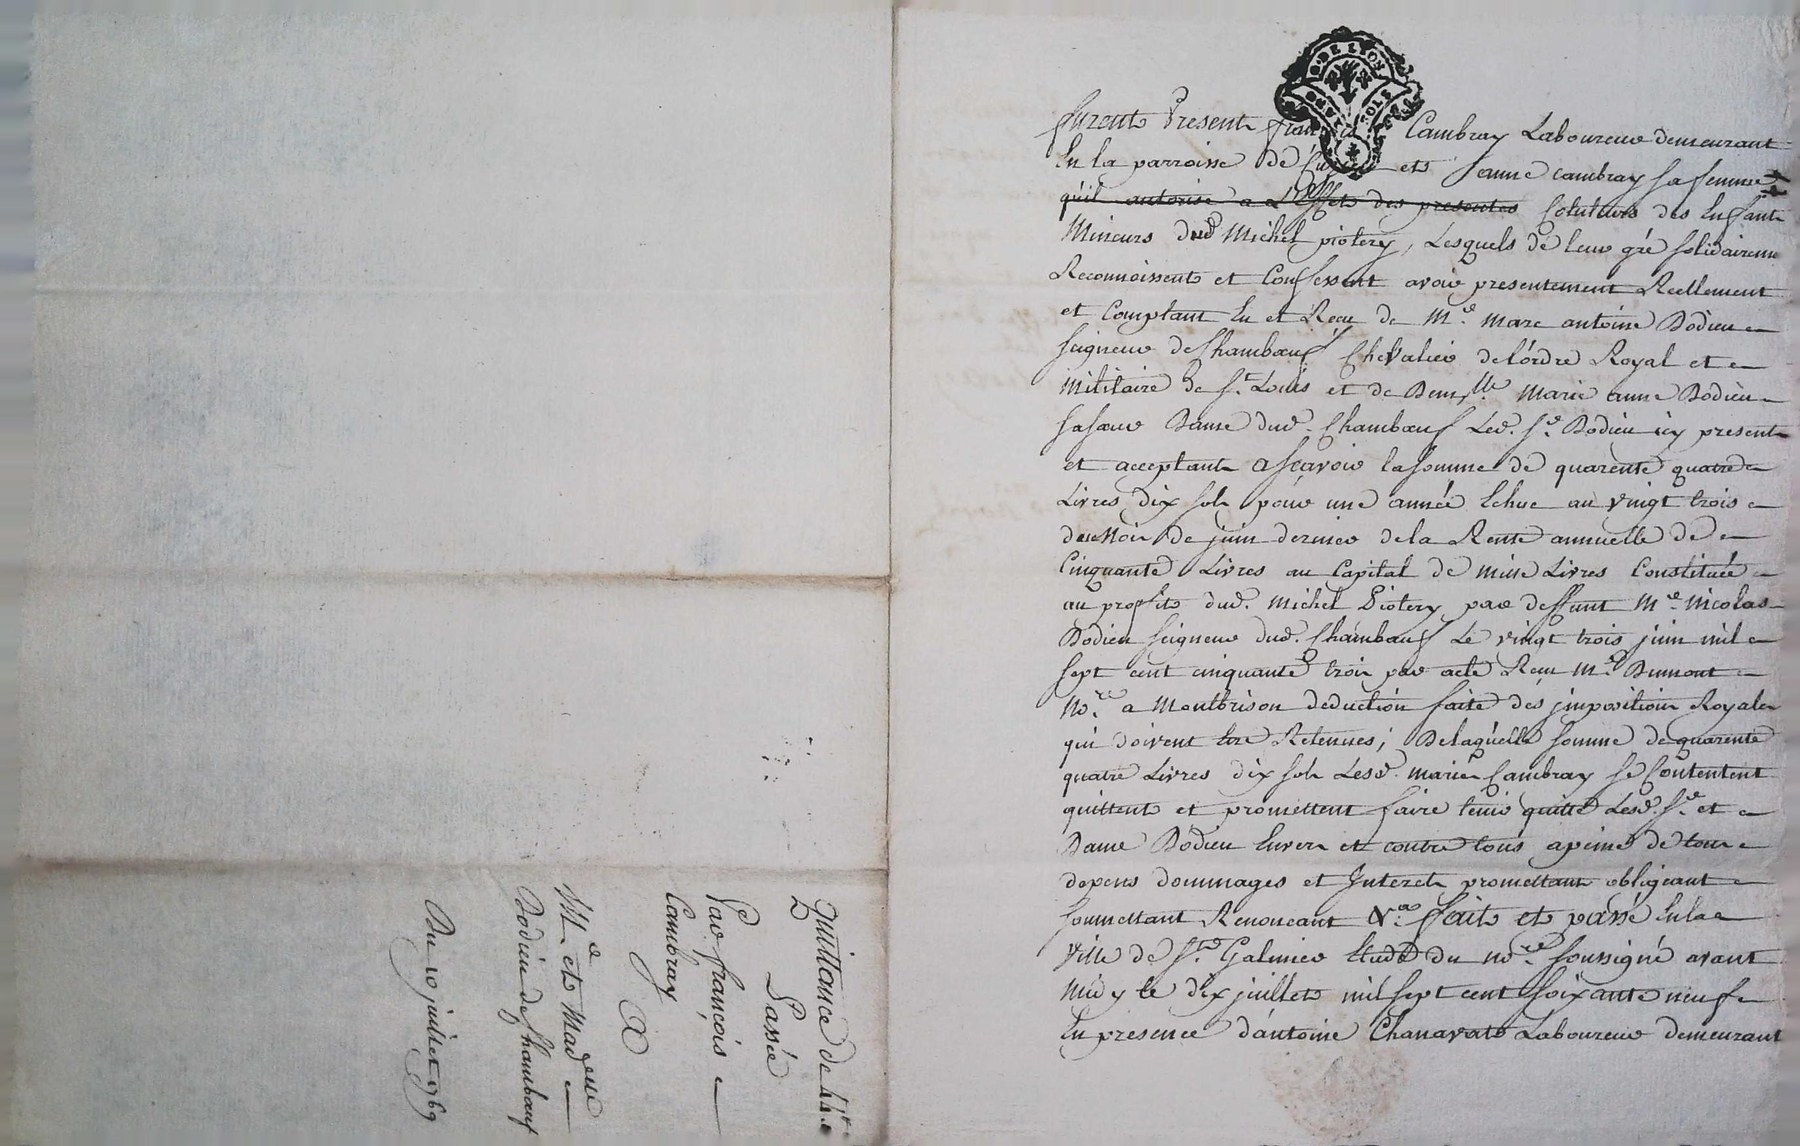 furent Present françois Cambray Laboureur demeurant
En la parroisse de et Jeanne cambray sa femme
qu'il autorise a L'Effets des presentes Cotuteurs des Enfants
Mineurs dud Michel piotery, Lesquels de leur gré solidairemt
Reconnoissent et Confessent avoir presentement Reellement
et Comptant Eu et Recu de Mre. Marc antoine Dodieu
seigneur de Chambœuf Chevalier de l'ordre Royal et
Militaire de St. Louis et de Demslle. Marie anne Dodieu
sa sœur Dame dud. Chambœuf Led. Sr. Dodieu icy present
et acceptant Asçavoir la somme de quarente quatre
Livres dix sols pour une année Echue au vingt trois
du Mois de juin dernier de la Rente annuelle de
Cinquante Livres au Capital de mille Livres Constituée
au proffits dud. Michel Piotery par deffunt Mre. Nicolas
Dodieu seigneur dud. Chambœuf Le vingt trois juin mil
sept cent cinquante trois par acte Recu Me. Dumont
Nore. a Montbrison deduction faite des jmpositions Royales
qui doivent Etre Retenues; De laquelle somme de quarente
quatre Livres dix sols Lesd. mariés Cambray se Contentent
quittent et promettent faire tenir quitte Lesd. Sr. et
Dame Dodieu Envers et contre tous a peine de tous
depens dommages et Interets promettant obligeant
soumettant Renonceant &a. fait et passé En la
Ville de St. Galmier Etude du nore. soussigné avant
Midy le dix juillet mil sept cent soixante neuf
En presence d'antoine Chanavat Laboureur demeurant
Quittance de 44lt
Passée
Par françois
Cambray
A
Mre et Madelle
Dodieu de Chambœuf
Du 10 juillet 1769